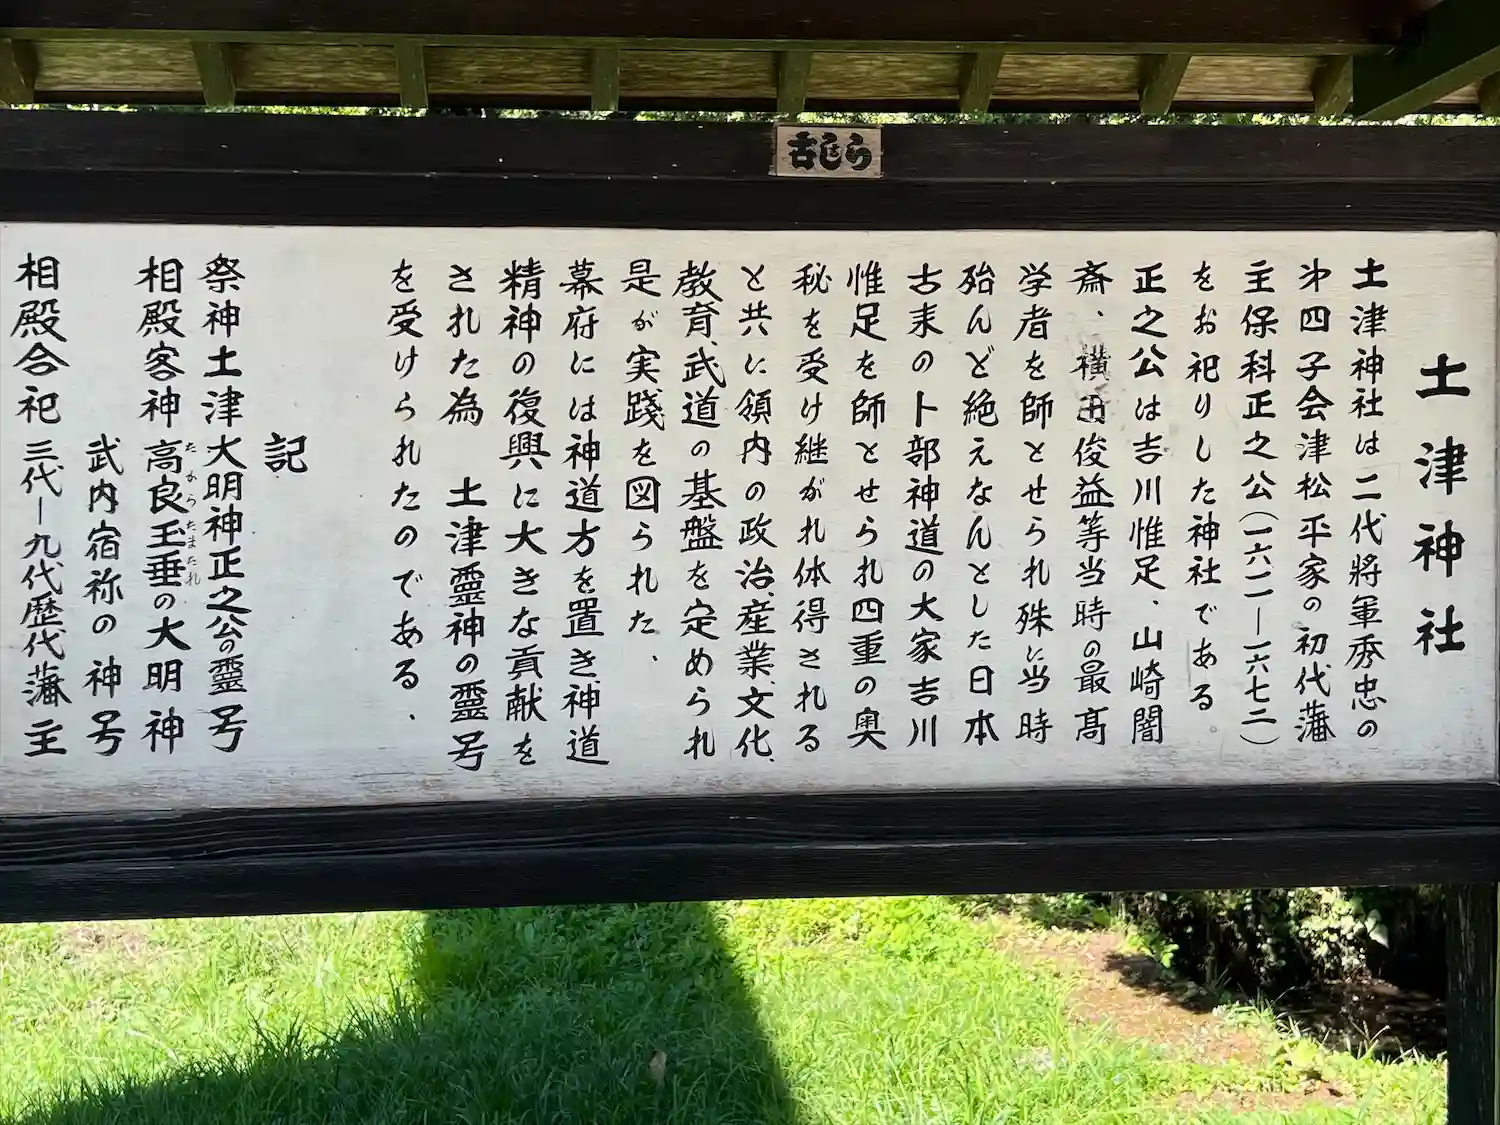 古むら
土津神社
土津神社は二代將軍秀忠の
㐧四子会津松平家の初代藩
主保科正之公(一六一一―一六七二)
をお祀りした神社である。
正之公は吉川惟足、山崎闇
斎、横田俊益等当時の最髙
学者を師とせられ殊に当時
殆んど絶えなんとした日本
古来の卜部神道の大家吉川
惟足を師とせられ四重の奥
秘を受け継がれ体得される
と共に領内の政治、産業、文化、
教育、武道の基盤を定められ
是が実践を図られた、
幕府には神道方を置き、神道
精神の復興に大きな貢献を
された為 土津靈神の靈号
を受けられたのである、
記
祭神土津大明神正之公の靈号
相殿客神高良玉垂の大明神
たからたまたれ
武内宿祢の神号
相殿合祀三代―九代歴代藩主